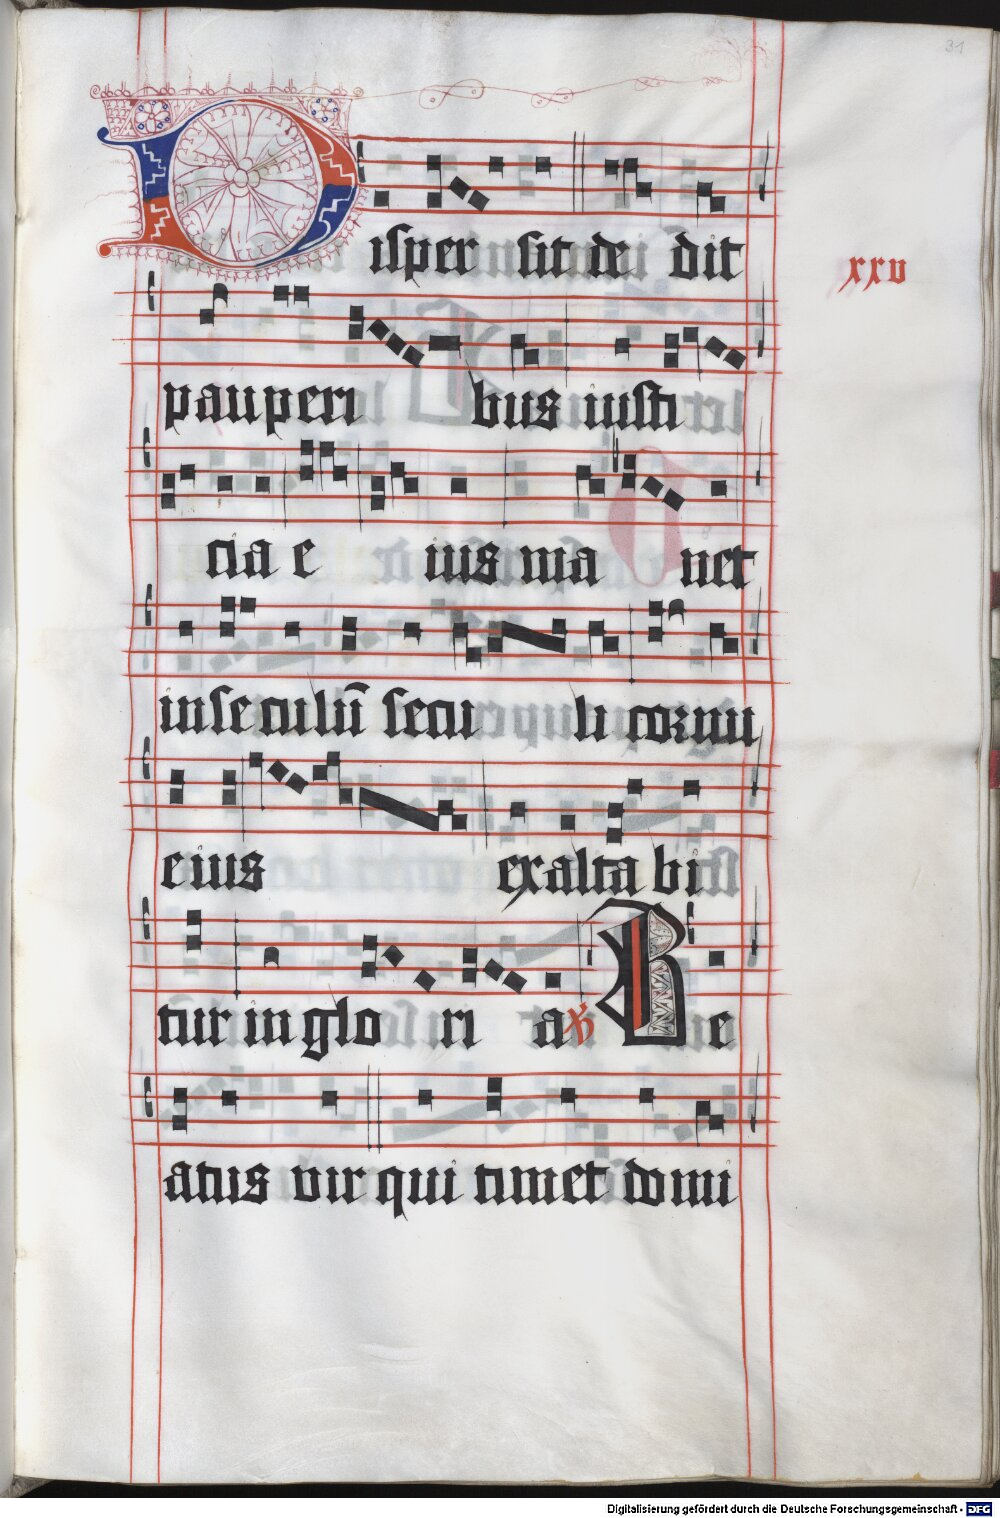 31
Disper sit de dit
xxv
pauperi bus iusti
cia e ius ma net
in seculū secu li cornu
eius exalta bi
tur in glo ri a ℣ Be
atus vir qui timet domi
Digitalisierung gefördert durch die Deutsche Forschungsgemeinschaft - DFG